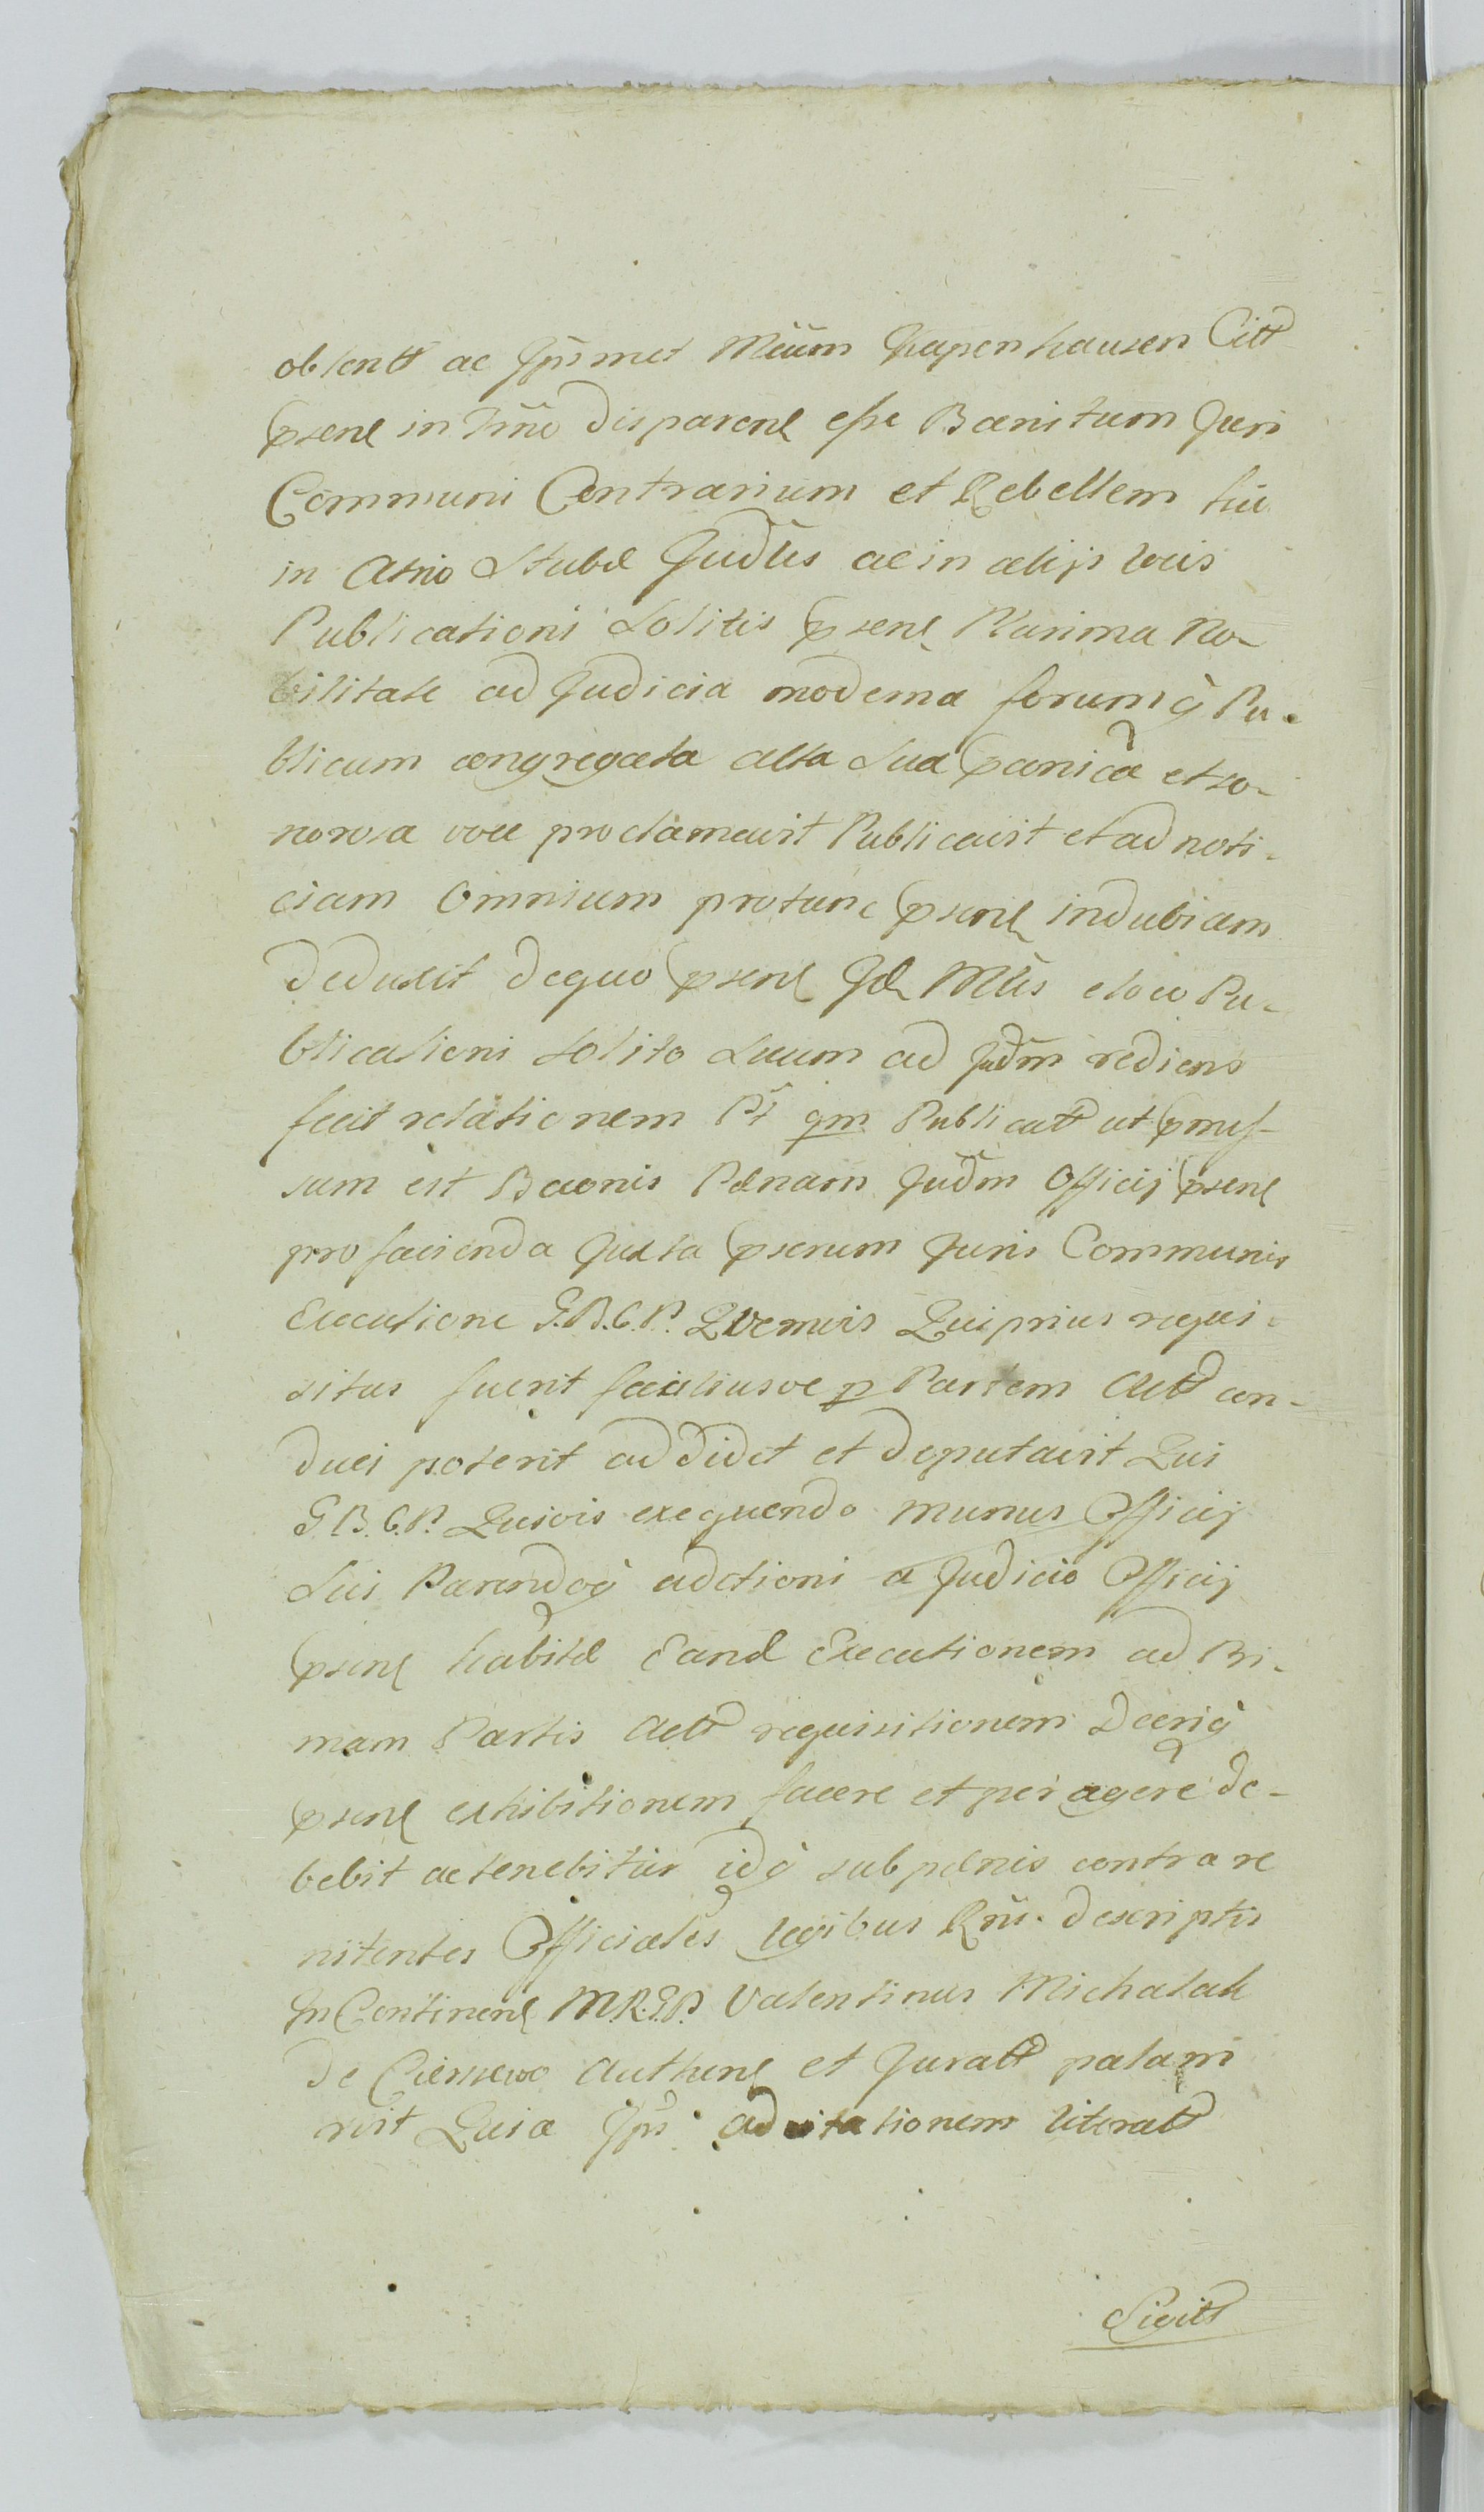 obtentt ac Ipsummet Mcum Papenhausen Citt
psent in Tmno disparent esse Banitum Juri
Communi Contrarium et Rebellem hic
in Atrio Stubæ Judlis ac in alijs locis
Publicationi Solitis psent Plurima No-
bilitate ad Judicia moderna forumq̀ Pu-
blicum congregata alta Sua panica et so-
norosa voce proclamavit Publicavit et ad noti-
ciam Omnium protunc psent indubiam
deduxit dequo psent Id Mlis e loco Pu-
blicationi solito Suum ad Judm rediens
fecit relationem Pt qm Publicatt ut pmis-
sum est Baonis Pænam Judm Officij psent
pro facienda Juxta pserum Juris Communis
Executione G.B.C.P. Quemvis Qui prius requi-
situs fuerit faciliusve p Partem Actt con-
duci poterit addidit et deputavit Qui
G.B.C.P. Quisvis exequendo munus Officij
Sui Parendoq̀ adctioni a Judicio Officij
psent habitæ Eand Executionem ad Pri-
mam Partis Actt requisitionem Decriq̀
psent exhibitionem facere et peragere de-
bebit ac tenebitur idq̀ sub pænis contra re
nitentes Officiales legibus Rni. descriptis
In Continent M.R.G.P. Valentinus Michalak
de Ciensewo Authent et Juratt palam
rvit Quia Ipse ad citationem literatt
Sigitt